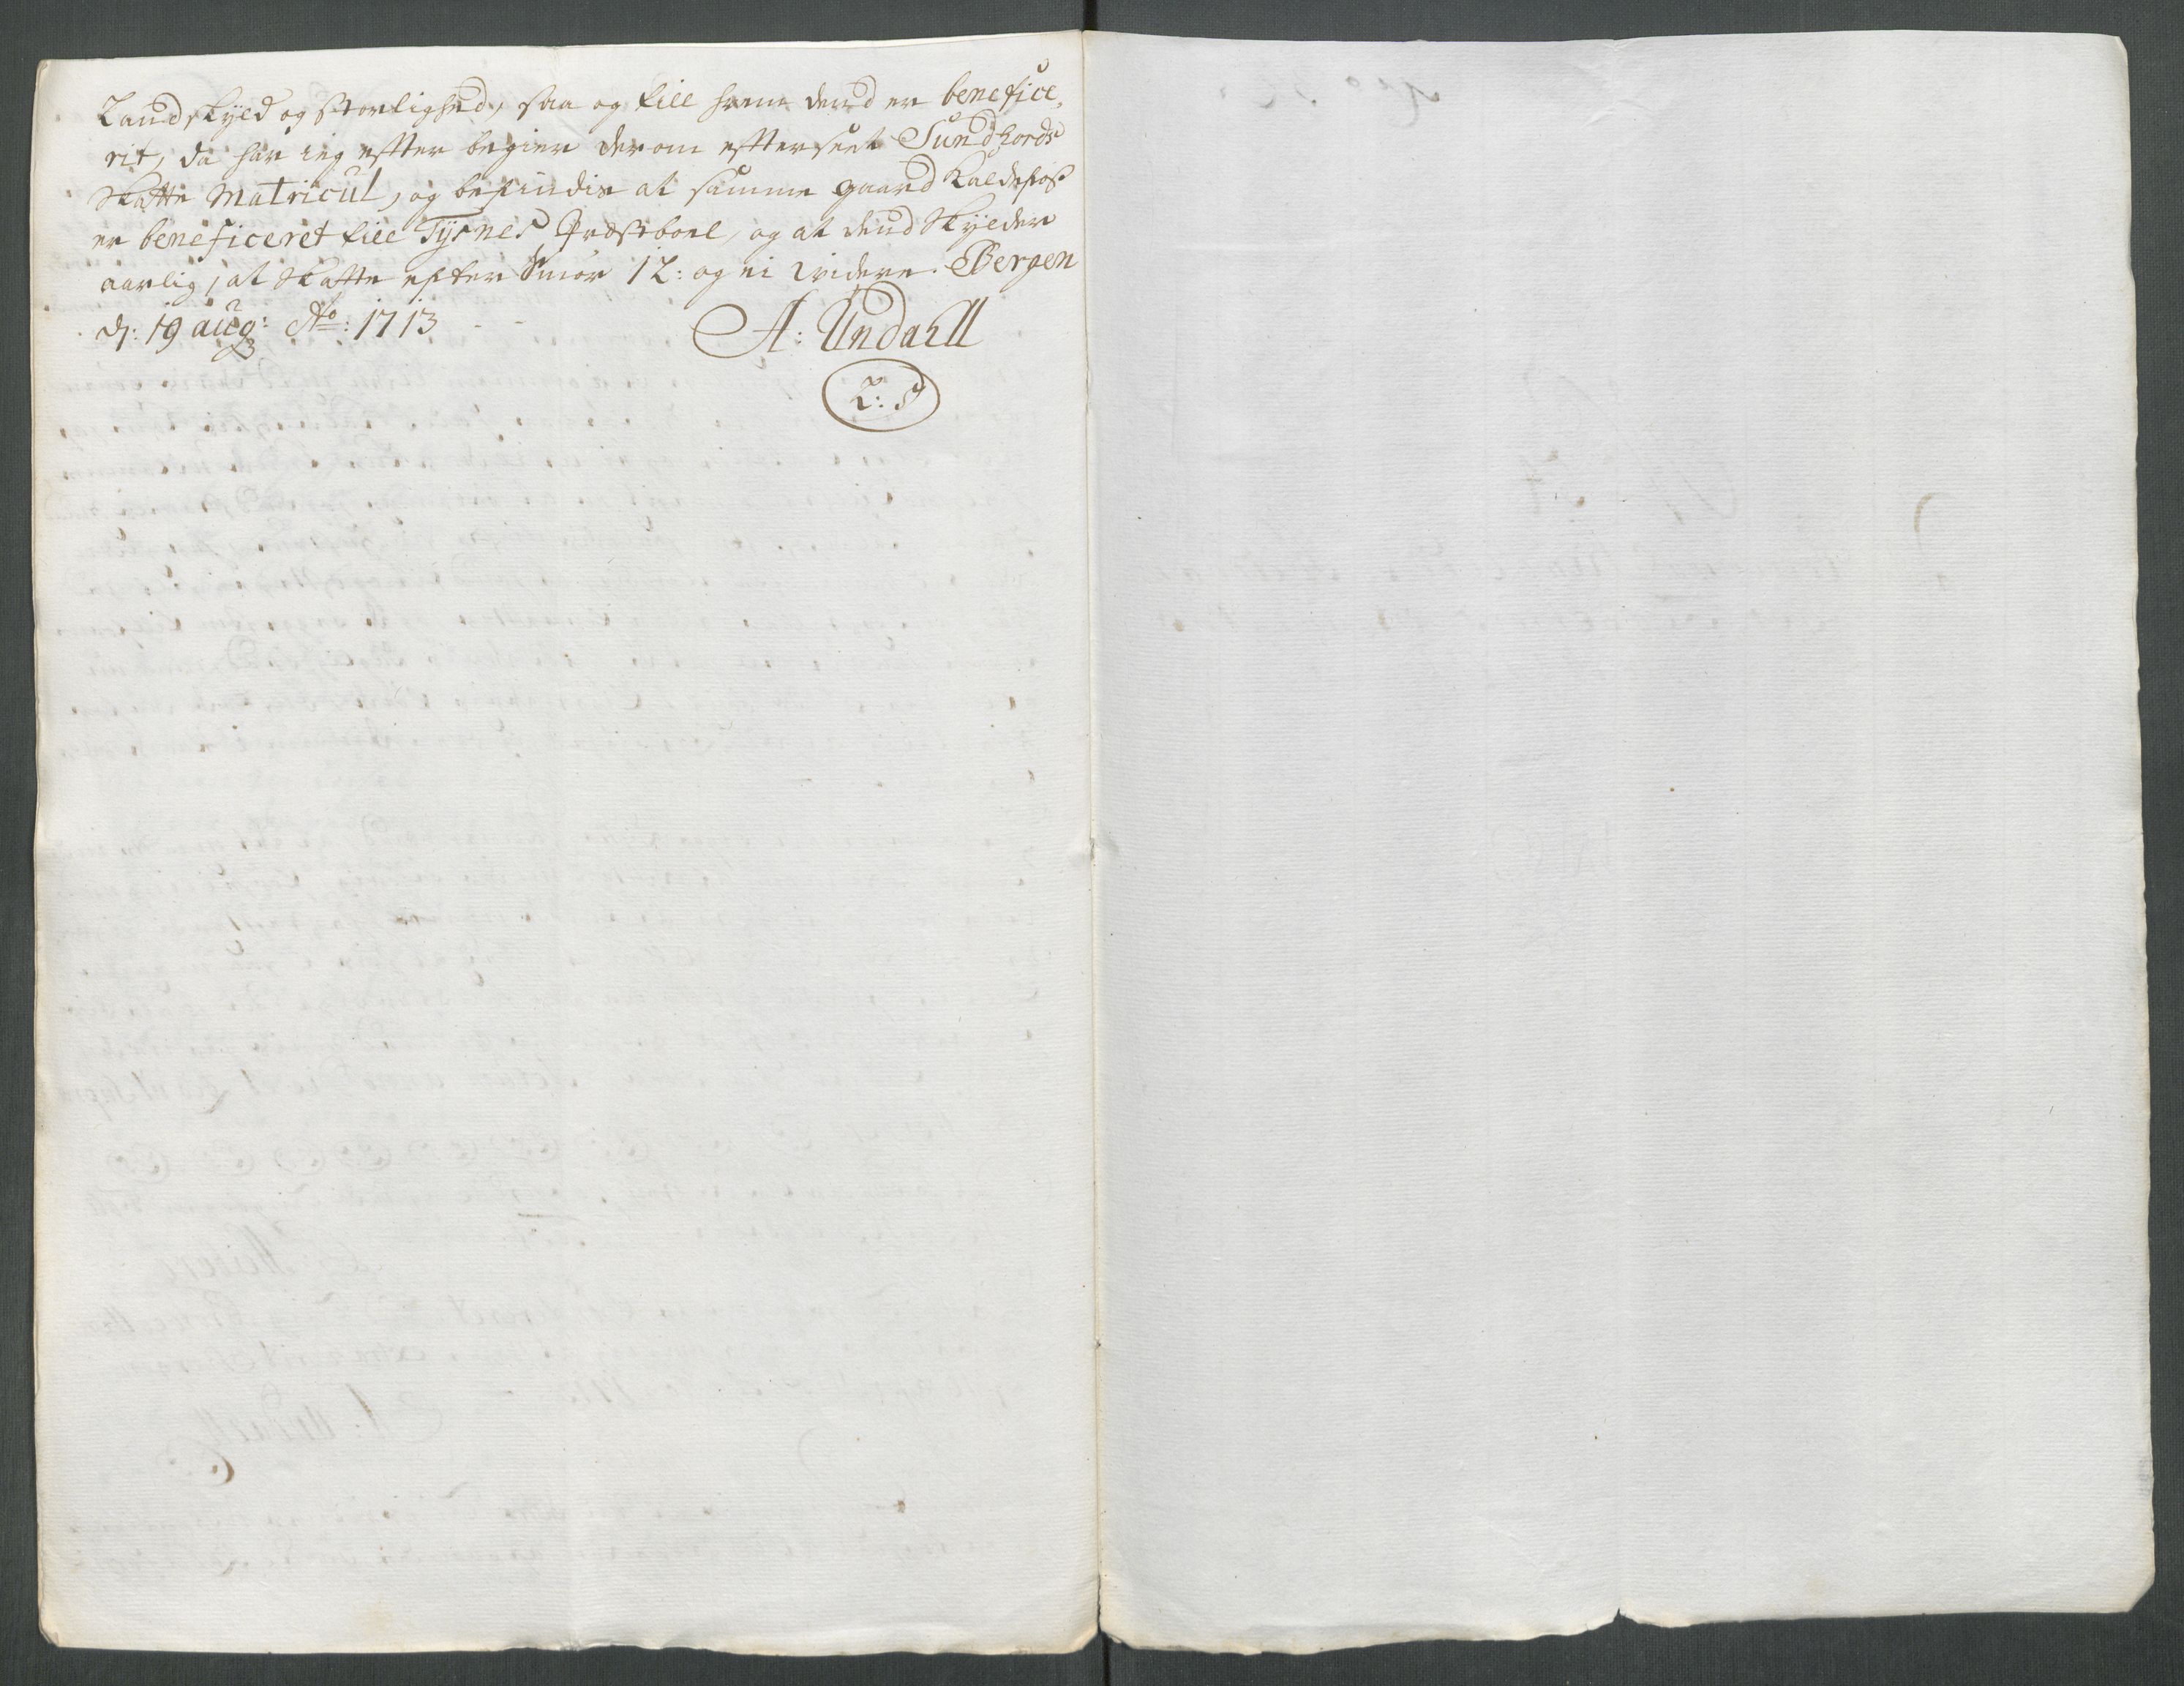 Landskyld og Storlighed, saa og till hvem dend er benefice,
rit, da har ieg efter begier derom efterseet Sundhords
Skatte Matricul, og befindis at samme gaard Kaldefos
er beneficeret till Tysnes Præsteboel, og at dend Skylder
aarlig, at Skatte efter Smör 1 L: og ei widere. Bergen
d: 19 aug: Ao: 1713 - -
A: Undahll
L: S